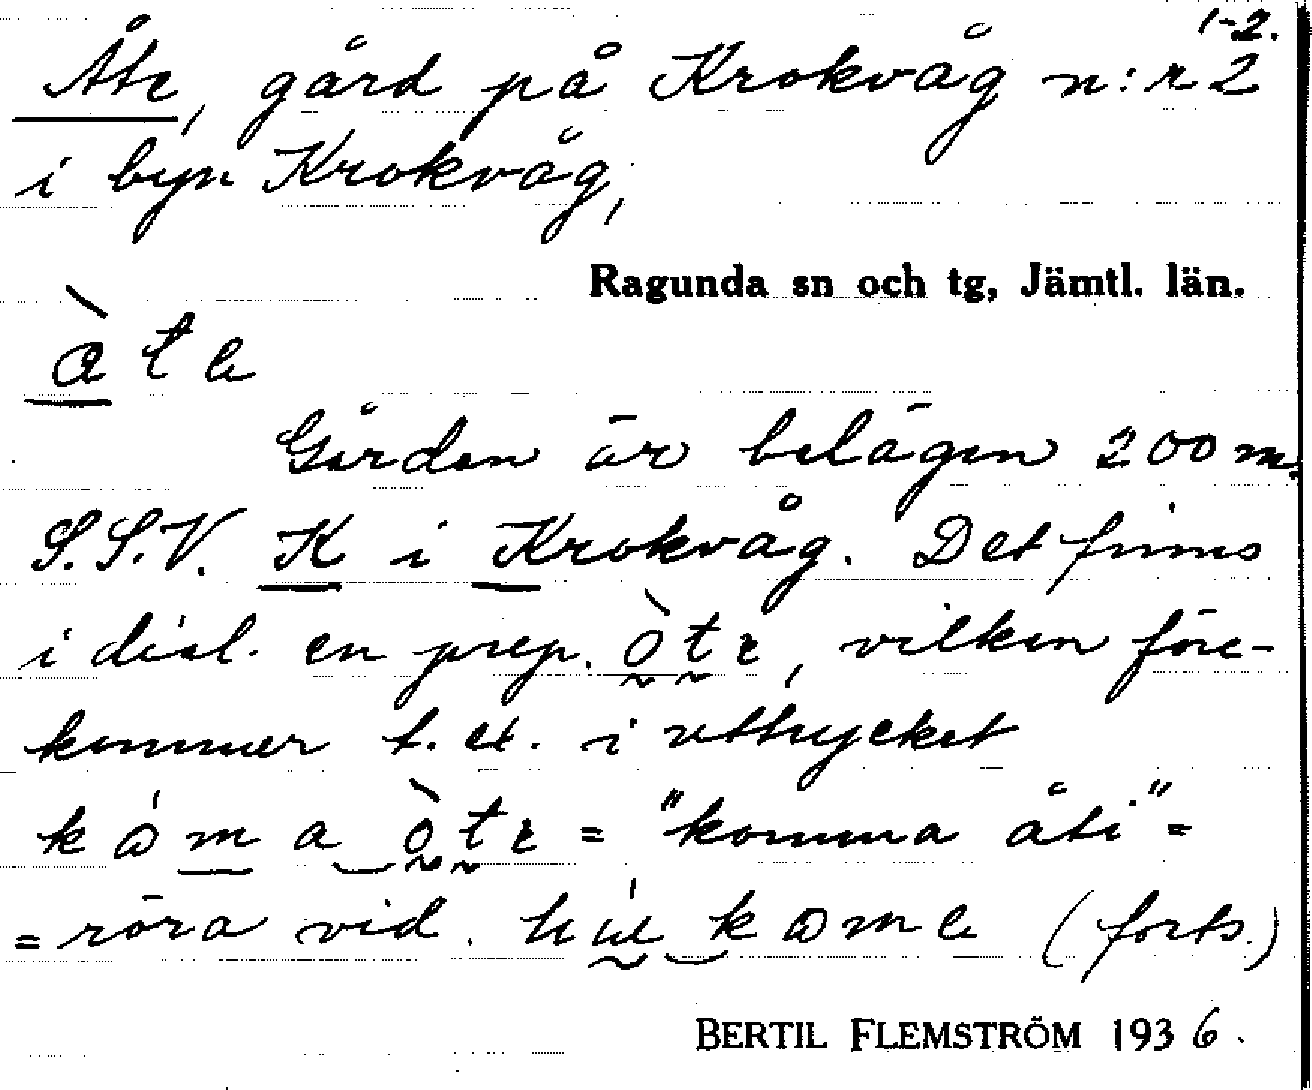 1-2.
Åte, gård på Krokvåg n:r 2
i byn Krokvåg,
Ragunda sn och tg, Jämtl. län.
àte
Gården är belägen 200 m.
S.S.V. K i Krokvåg. Det finns
i dial. en prep. òtɛ, vilken före-
kommer t. ex. i uttrycket
kåma òtɛ = "komma åti" =
= röra vid. kame (forts.)
BERTIL FLEMSTRÖM 1936.